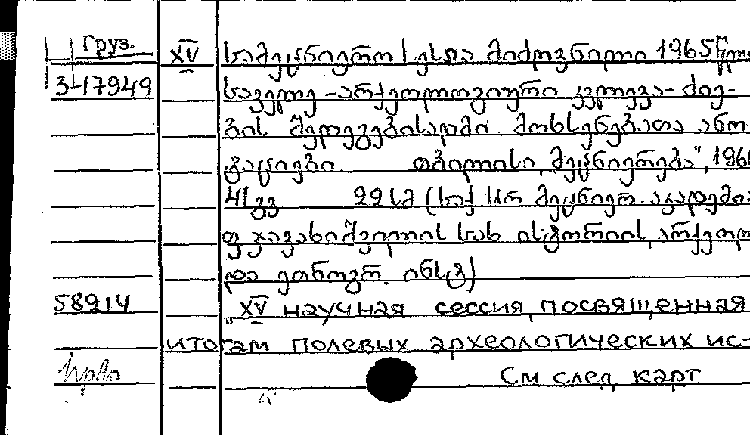 Груз. XV სამეცნიერო სესია მიძღვნილი 1965 წლის
3-17949 საველე-არქეოლოგიური კვლევა-ძიე-
ბის შედეგებისადმი მოხსენებათა ანო-
ტაციები თბილისი „მეცნიერება", 196
41 გვ 22 სმ (საქ სსრ მეცნიერ. აკადემია
ი ჯავახიშვილის სახ ისტორიის, არქეოლ
და ეთნოგრ. ინსტ)
58914 „XV научная сессия, посвященная
итогам полевых археологических ис-
См след карт